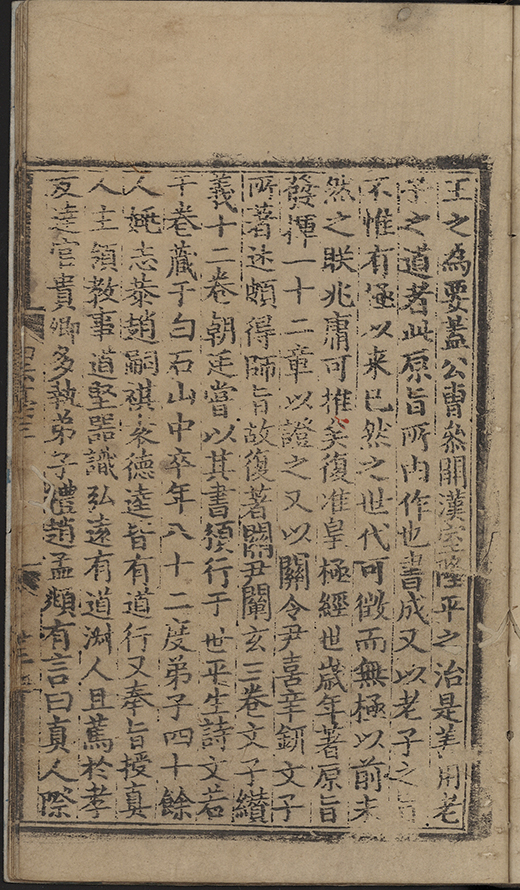 王之為要蓋公曹叅開漢室隆平之治是用老
子之道者此原旨所由作也書成又以老子之
不惟有極以来已然之世代可徴而無極以前未
然之眹兆庸可推矣復准皇極經世歳年著原旨
發揮一十二章以證之又以關令尹喜辛鈃文子
所著述頗得師旨故復著關尹闡玄三卷文子纉
義十二卷朝廷嘗以其書頒行于世平生詩文若
干卷藏于白石山中卒年八十二度弟子四十餘
人姚志恭趙嗣祺徳逵皆有道行又奉旨授真
人主領教事道堅器識弘遠有道渊人且蔫於孝
友逹官貴卿多執弟子禮趙孟頫有言曰真人際